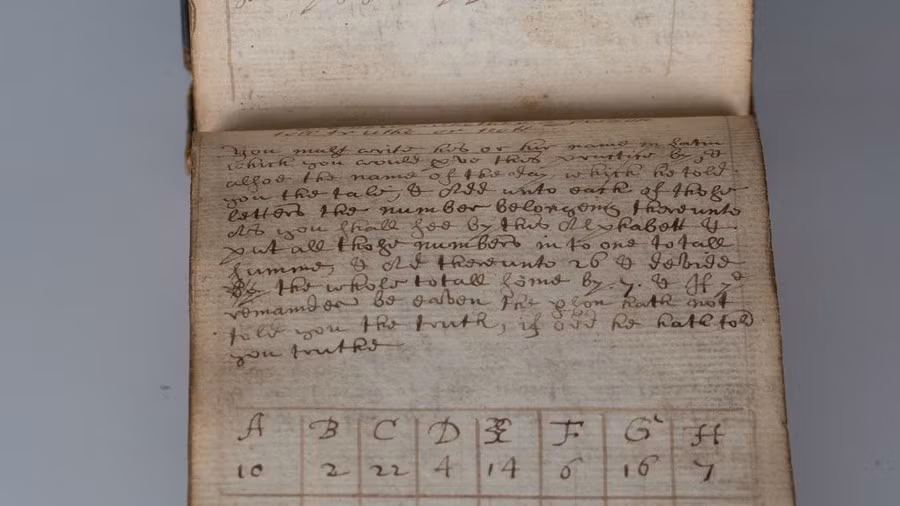 tell truthe or not
You must write his or hir name in Latin
which you would prove this practice by, &
allsoe the name of the day which he told
you the tale, & Add unto each of those
letters the number belongeing thereunto
As you shall see by this Alphabett &
put all those numbers in to one totall
summe, & Ad thereunto 26 & devide
the whole totall some by .7. & If ye
remainder be eaven the p̱son hath not
told you the truth, if odd he hath told
you truthe
A B C D E F G H
10 2 22 4 14 6 16 7